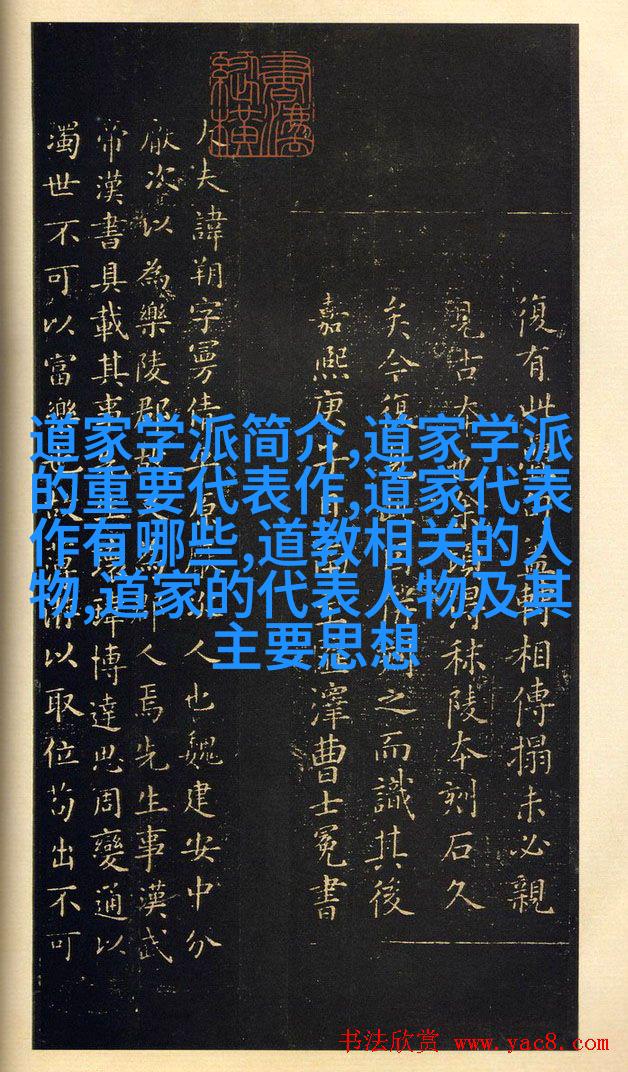 道家学派简介,道家学派
的重要代表作,道家代表
作有哪些,道教相关的人
物,道家的代表人物及其
主要思想
復有此轉相傳搨未必親
見古本秣陵本刻石久
矣今復之而識其後
嘉熙庚澤曹士冕書
大夫諱朔字曼倩人也魏建安中分
厭次以為樂陵郡人焉先生事漢武
帝漢書具載其事博達思周變通以
濁世不可以富樂以取位苟出不可
书法欣赏 www.yac8.com